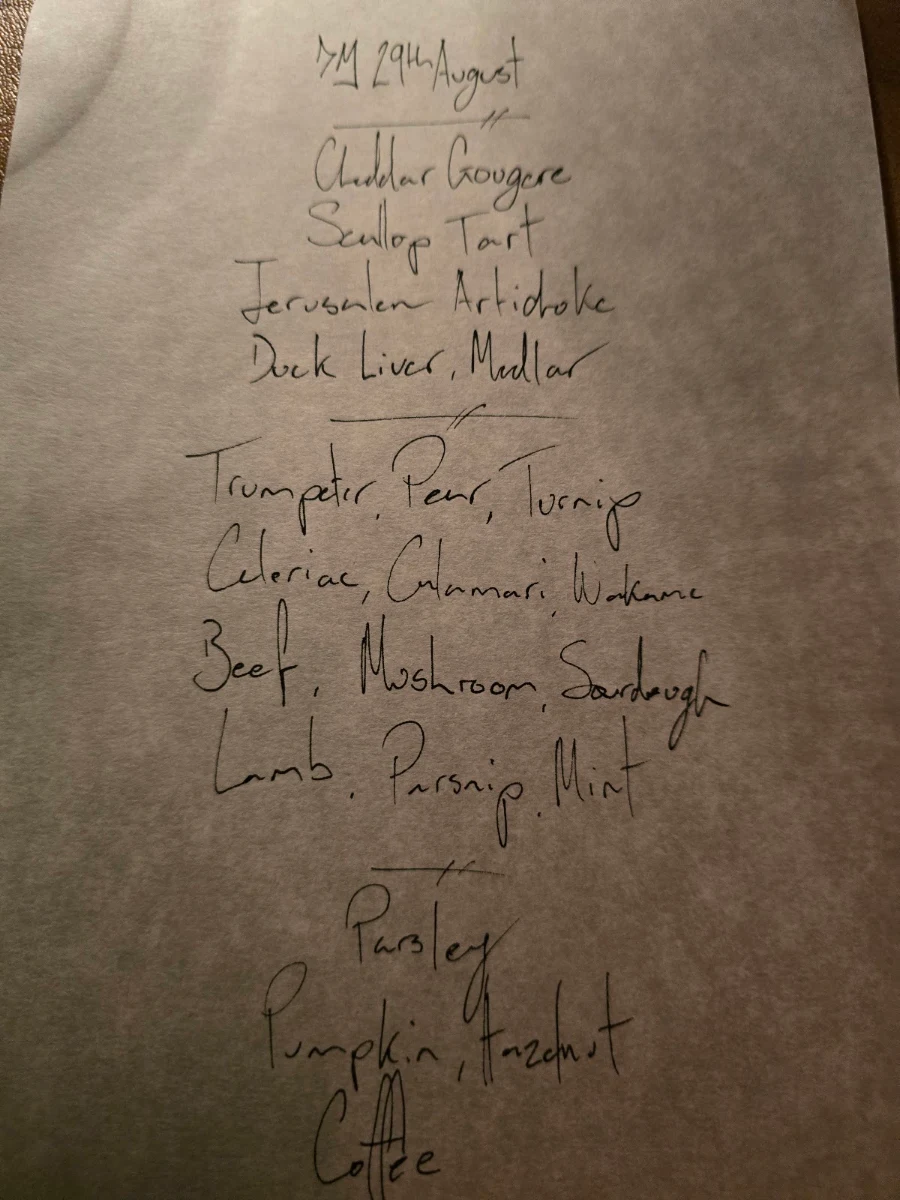 DM 29th August
Cheddar Gougere
Scallop Tart
Jerusalem Artichoke
Duck Liver, Medlar
Trumpeter, Pear, Turnip
Celeriac, Calamari, Wakame
Beef, Mushroom, Sourdough
Lamb, Parsnip, Mint
Parsley
Pumpkin, Hazelnut
Coffee